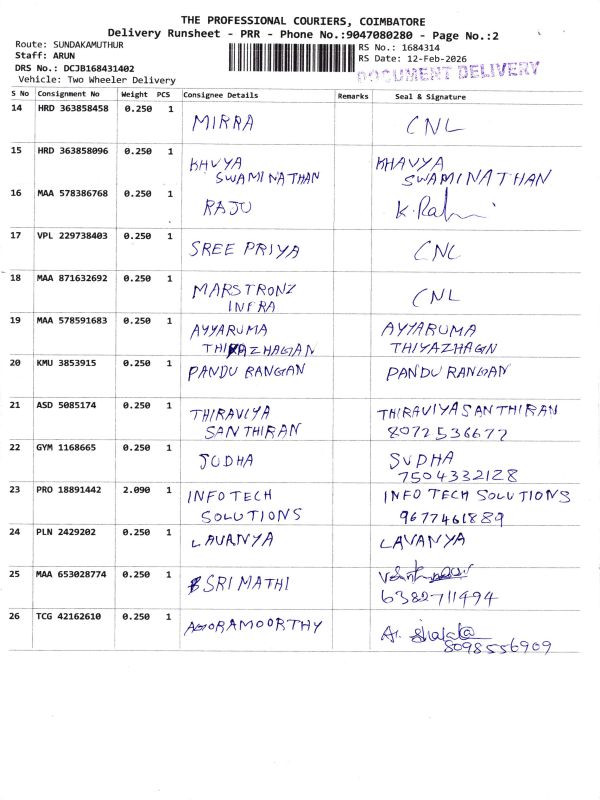 THE PROFESSIONAL COURIERS, COIMBATORE
Delivery Runsheet - PRR - Phone No.:9047080280 - Page No.:2
Route: SUNDAKAMUTHUR
RS No.: 1684314
Staff: ARUN
RS Date: 12-Feb-2026
DRS No.: DCJB168431402
DOCUMENT DELIVERY
Vehicle: Two Wheeler Delivery
S No Consignment No Weight PCS Consignee Details Remarks Seal & Signature
14 HRD 363858458 0.250 1 MIRRA CNL
15 HRD 363858096 0.250 1 KHVYA KHAVYA
SWAMINATHAN SWAMINATHAN
16 MAA 578386768 0.250 1 RAJU
17 VPL 229738403 0.250 1 SREE PRIYA CNL
18 MAA 871632692 0.250 1 MARSTRONZ CNL
INFRA
19 MAA 578591683 0.250 1 AYYARUMA AYYARUMA
THIYAZHAGAN THIYAZHAGN
20 KMU 3853915 0.250 1 PANDU RANGAN PANDU RANGAN
21 ASD 5085174 0.250 1 THIRAVIYA THIRAVIYASANTHIRAN
SANTHIRAN 8072536677
22 GYM 1168665 0.250 1 SUDHA SUDHA
7504332128
23 PRO 18891442 2.090 1 INFOTECH INFO TECH SOLUTIONS
SOLUTIONS 9677461889
24 PLN 2429202 0.250 1 LAVANYA LAVANYA
25 MAA 653028774 0.250 1 SRIMATHI
6382711494
26 TCG 42162610 0.250 1 AGORAMOORTHY
8098556909